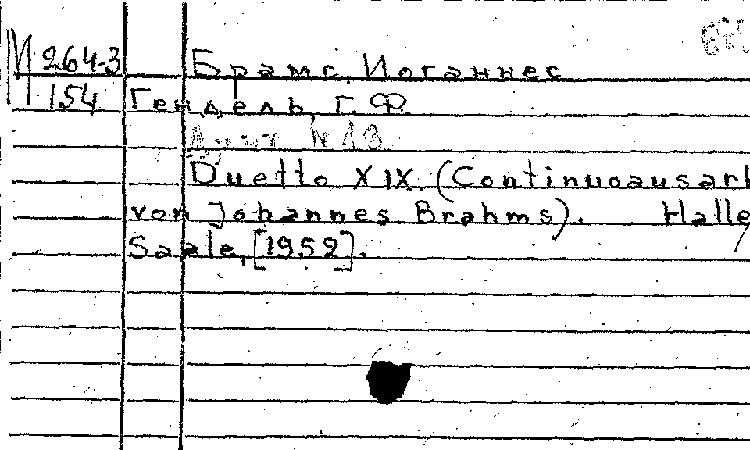 М 264-3 Брамс, Иоганнес
154 Гендель, Г. Ф.
№ 13
Duetto XIX. (Continuoausarb
von Johannes Brahms). Halle
Saale, [1952].